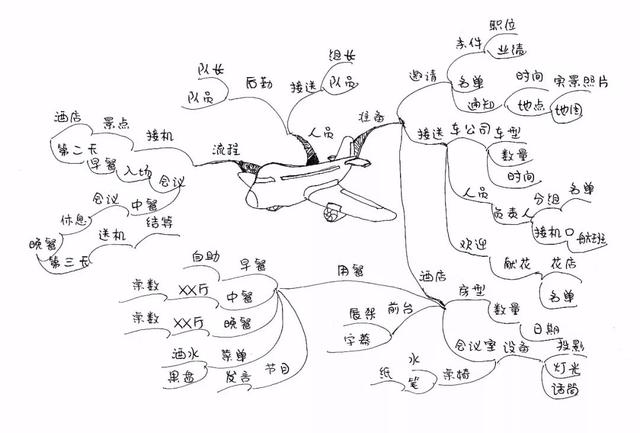 职位
条件
业绩
邀请
名单
时间
实景照片
通知
地点
地图
组长
接送
队员
队长
后勤
队员
人员
准备
接送
车公司
车型
数量
时间
人员
分组
名单
负责人
接机口
航班
欢迎
献花
花店
名单
酒店
景点
接机
流程
第二天
早餐
入场
会议
会议
中餐
休息
结算
晚餐
送机
第三天
自助
早餐
用餐
桌数
XX厅
中餐
桌数
XX厅
晚餐
酒水
菜单
果盘
发言
节目
酒店
房型
数量
日期
前台
展架
字幕
会议室
设备
投影
灯光
话筒
桌椅
水
纸
笔